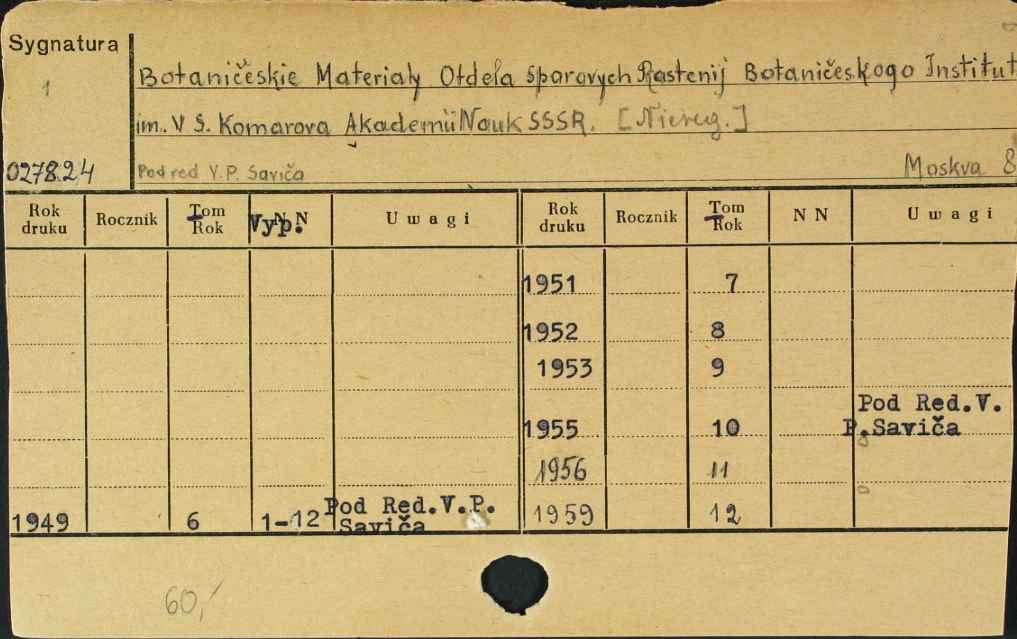 Sygnatura
1
Botaničeskie Materiały Otdeła Sporovych Rastenij Botaničeskogo Institut
im. V Ł. Komarova Akademii Nauk SSSR. [Niereg.]
027824
Pod red V.P. Saviča
Moskva 8
Rok druku Rocznik Tom Rok NN Vyp. Uwagi Rok druku Rocznik Tom Rok NN Uwagi
1951 7
1952 8
1953 9
Pod Red.V.
1955 10 P.Saviča
1956 11
1949 6 1-12 Pod Red.V.P. Saviča 1959 12
60,-